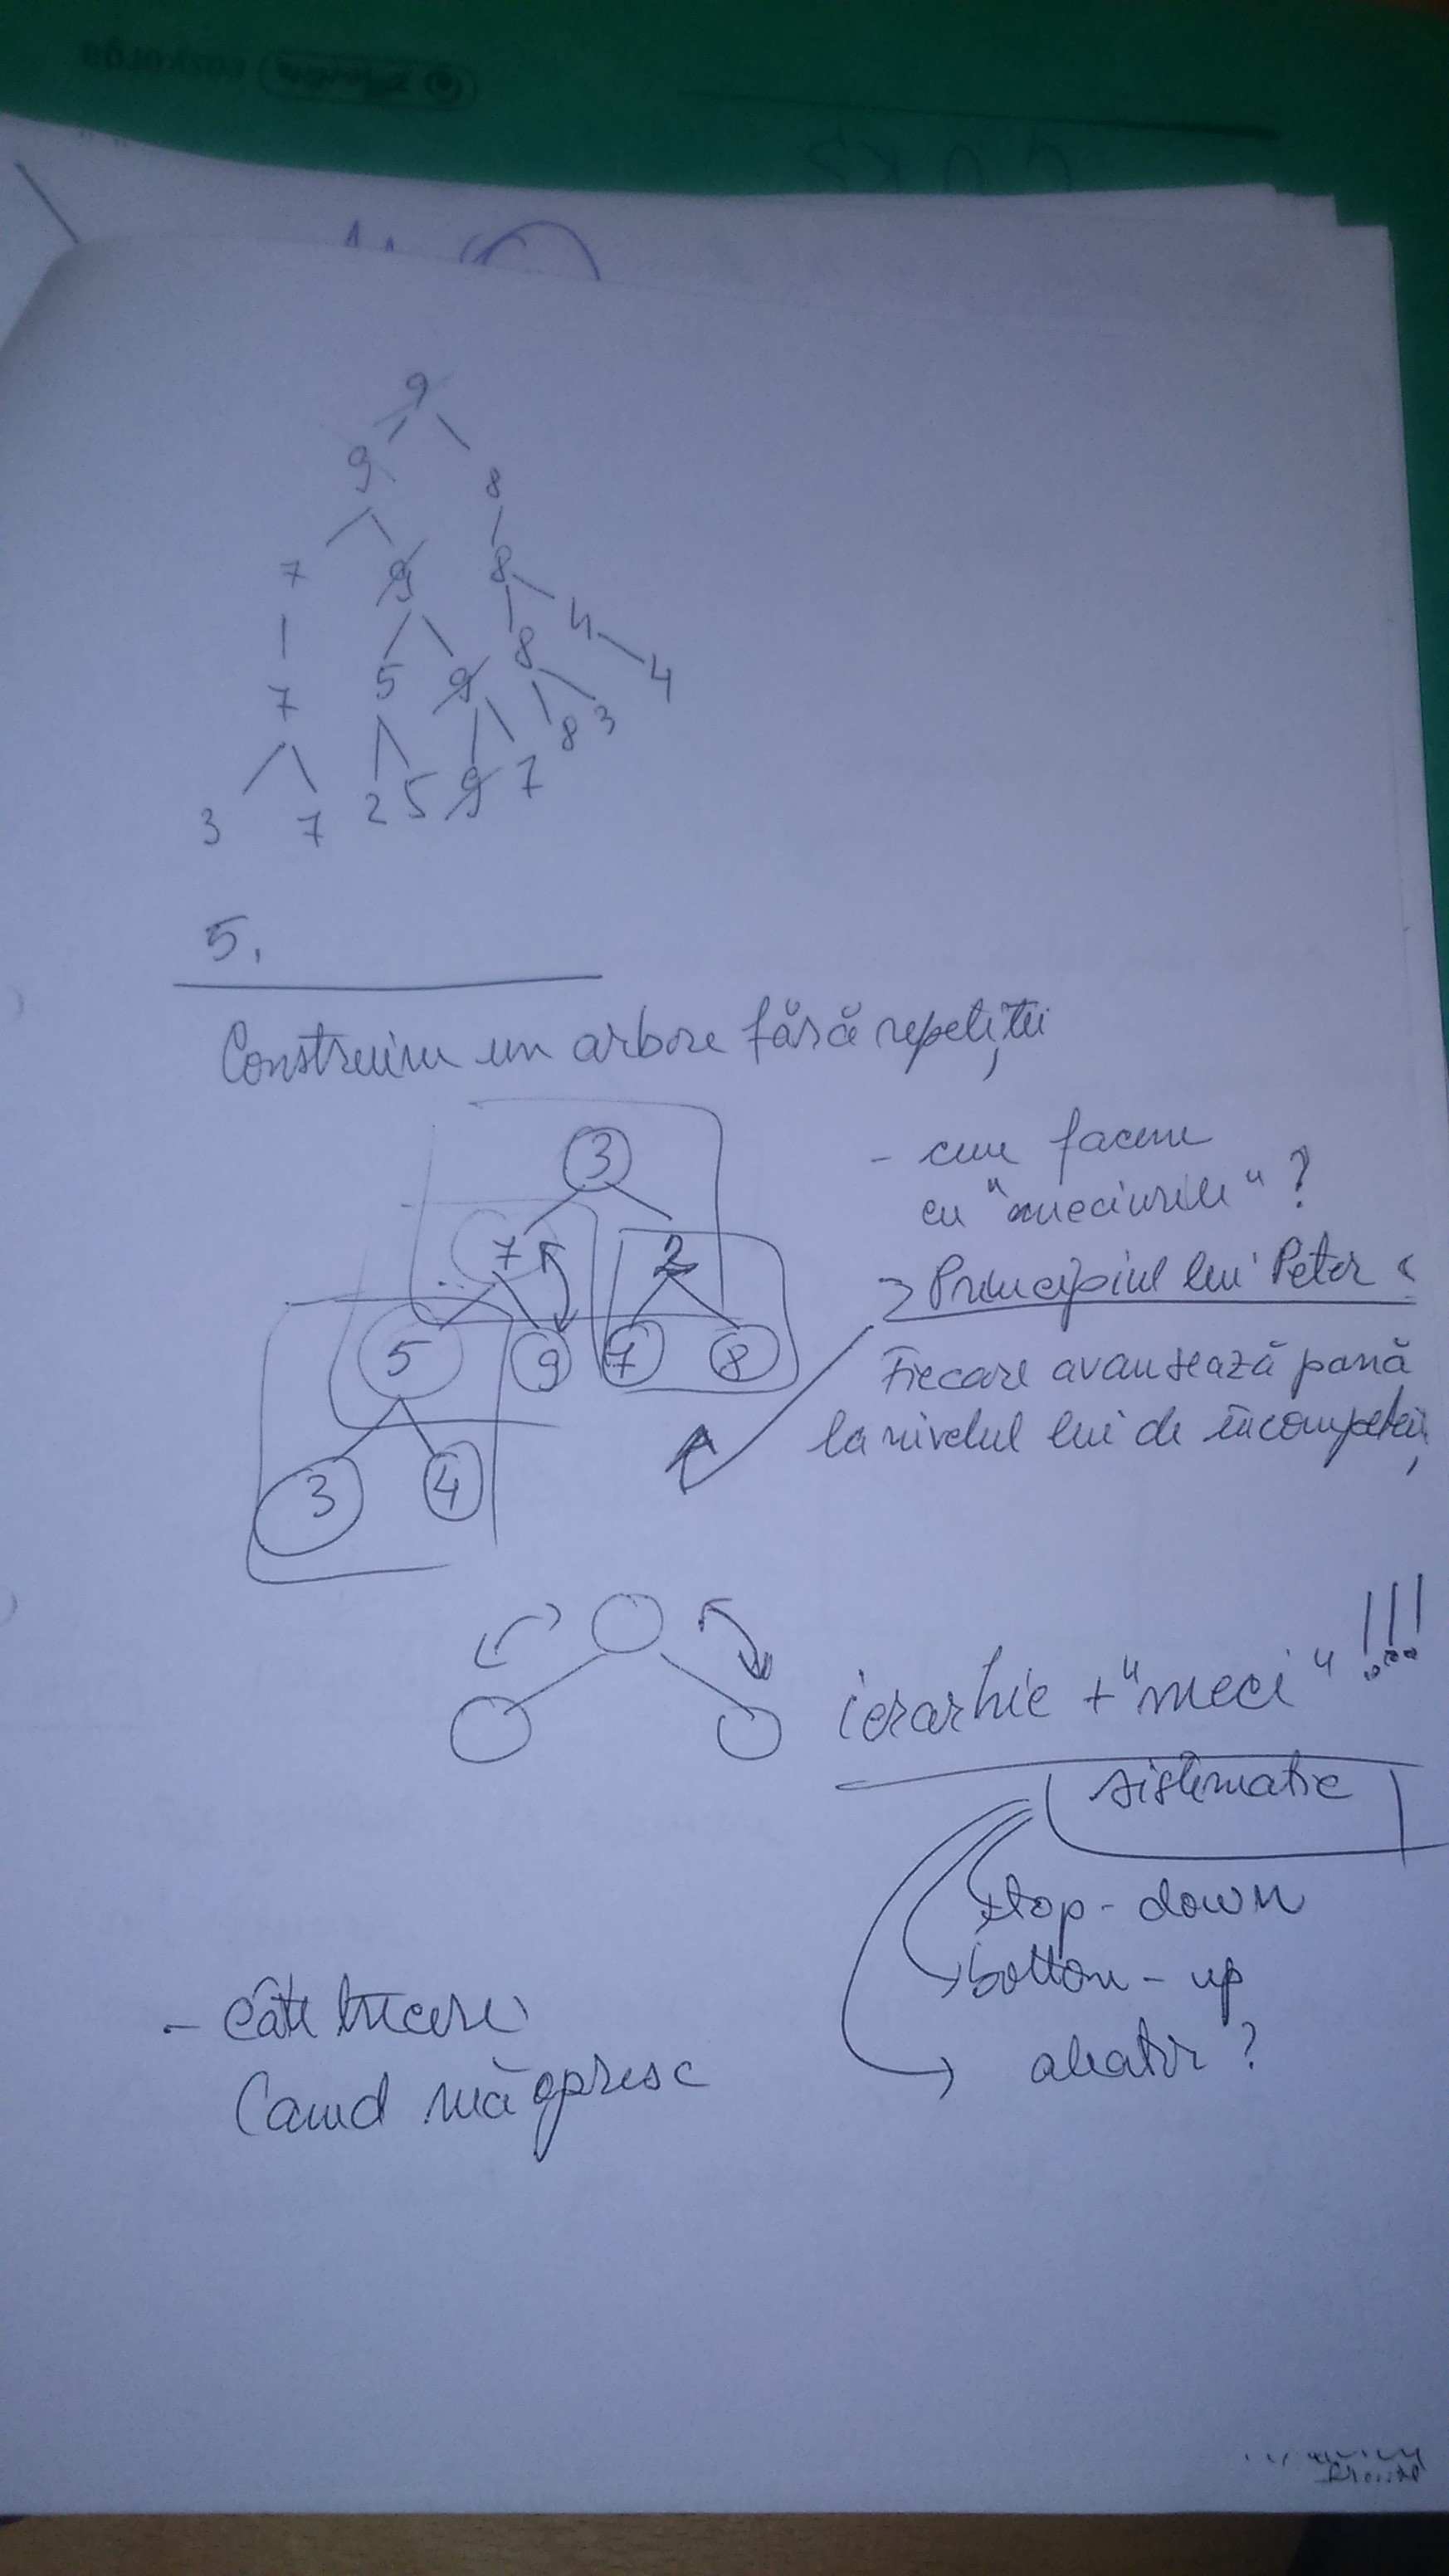 9
9 8
7 9 8
4
8
4
7 5 9
8 3
3 7 2 5 9 7
5,
Construim un arbore fără repetiții
3
7 2
5 9 7 8
3 4
- cum facem
cu "meciurile"?
Principiul lui Peter
Fiecare avansează până
la nivelul lui de incompeten
ierarhie + "meci" !!!
sistematic
top-down
bottom-up
aleator?
- câte treceri
Cand mă opresc